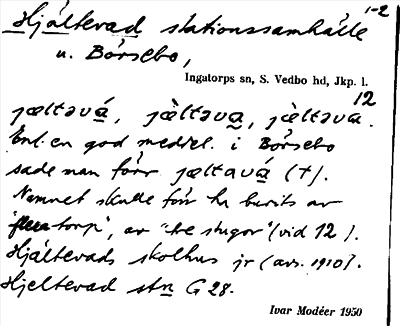 1-2
Hjältevad stationssamhälle
u. Börsebo,
Ingatorps sn, S. Vedbo hd, Jkp. l.
12
jæltəvá, jæ̀ltəva, jæ̀ltəva.
Enl. en god meddel. i Börsebo
sade man förr jæltavá (†).
Namnet skulle förr ha burits av
"flera torp", av "tre stugor" (vid 12).
Hjältevads skolhus jr (avs. 1910).
Hjeltevad stn G 28.
Ivar Modéer 1950